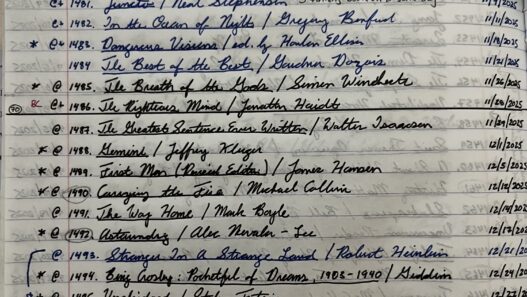 @+ 1481. Junction / Neal Stephenson
@+ 1482. In the Ocean of Night / Gregory Benford 11/11/2025
* @+ 1483. Dangerous Visions / ed. by Harlan Ellison 11/18/2025
1484 The Best of the Best / Gardner Dozois 11/21/2025
* @ 1485. The Breath of the Gods / Simon Winchester 11/26/2025
70 BC @+ 1486. The Righteous Mind / Jonathan Haidt 11/28/2025
@ 1487. The Greatest Sentence Ever Written / Walter Isaacson 11/29/2025
* @ 1488. Gemini / Jeffrey Kluger 12/1/2025
* @ 1489. First Man (Revised Edition) / James Hansen 12/5/2025
* @ 1490. Carrying the Fire / Michael Collins 12/12/2025
@ 1491. The Way Home / Mark Boyle 12/14/2025
* @ 1492. Astounding / Alec Nevala-Lee 12/17/2025
@ 1493. Stranger In A Strange Land / Robert Heinlein 12/21/20
* @ 1494. Bing Crosby: Pocketful of Dreams, 1903-1940 / Giddins 12/24/20